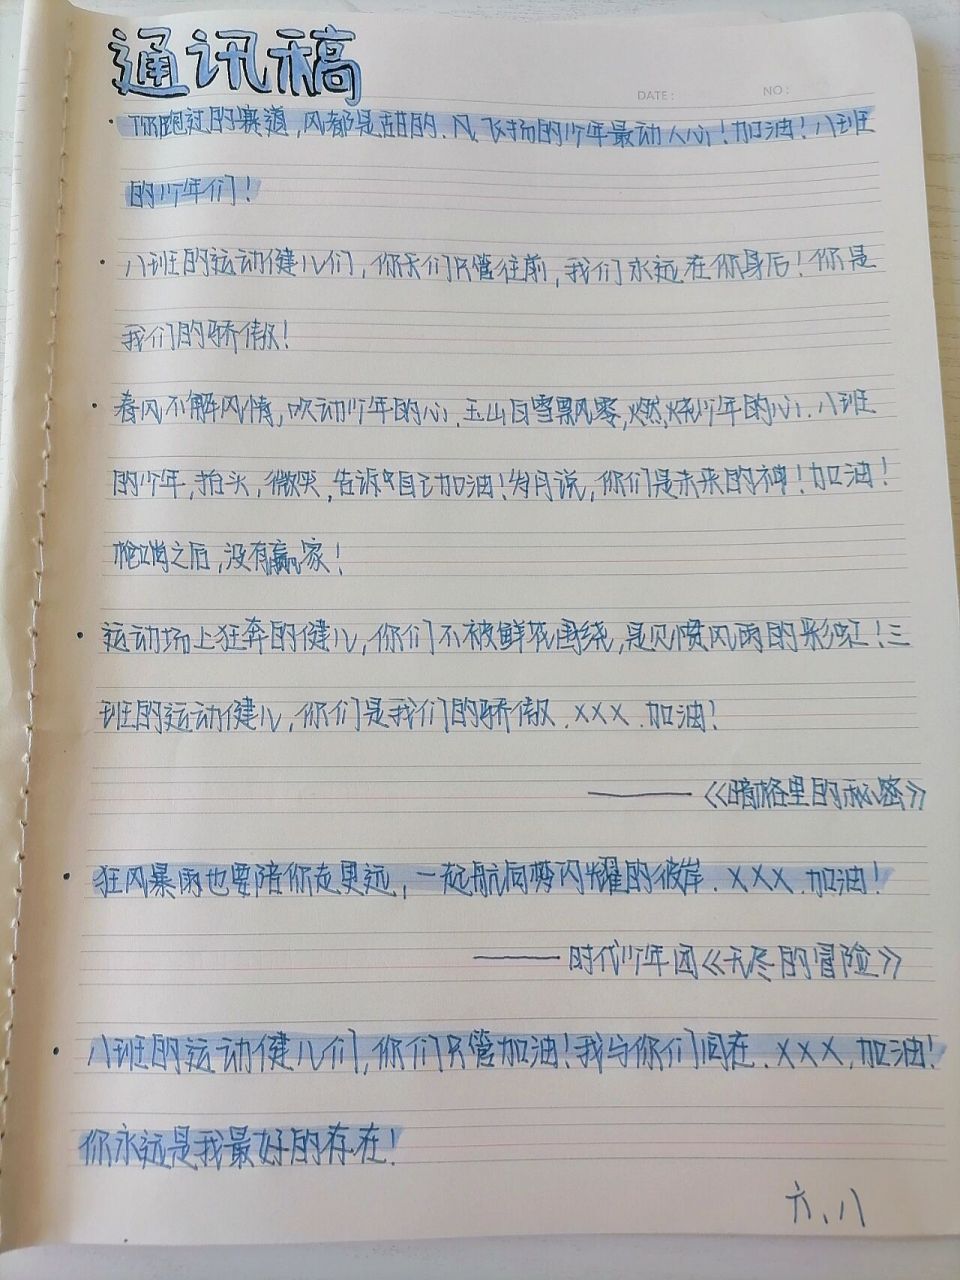 通讯稿
DATE: NO:
·你跑过的赛道,风都是甜的.风飞扬的少年最动人心!加油!八班
的少年们!
·八班的运动健儿们,你们只管往前,我们永远在你身后!你是
我们的骄傲!
·春风不解风情,吹动少年的心.玉山白雪飘零,燃烧少年的心.八班
的少年,抬头,微笑,告诉自己加油!岁月说,你们是未来的神!加油!
枪响之后,没有赢家!
·运动场上狂奔的健儿,你们不被鲜花围绕,是见惯风雨的彩虹!三
班的运动健儿,你们是我们的骄傲.XXX.加油!
——《暗格里的秘密》
·狂风暴雨也要陪你走更远,一起航向梦闪耀的彼岸.XXX.加油!
——时代少年团《无尽的冒险》
·八班的运动健儿们,你们只管加油!我与你们同在.XXX,加油!
你永远是我最好的存在!
六.八